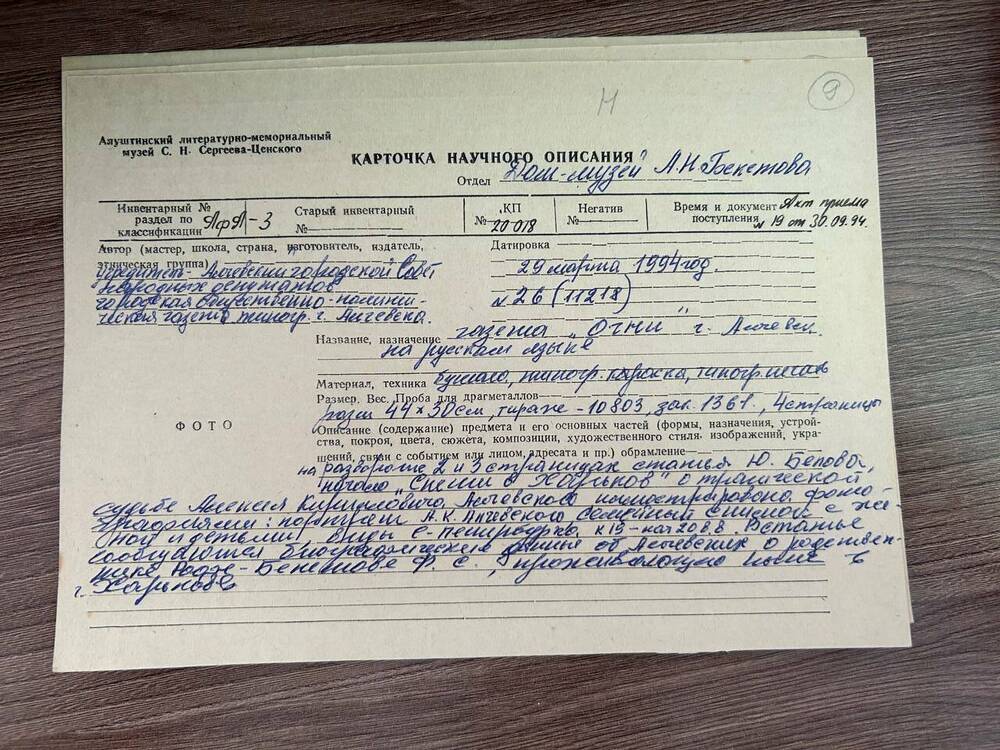 Н
9
Алуштинский литературно-мемориальный
музей С. Н. Сергеева-Ценского
КАРТОЧКА НАУЧНОГО ОПИСАНИЯ
Отдел Дом-музей А.Н. Бекетова
Инвентарный №
раздел по
классификации АфА-3
Старый инвентарный
№
КП
№ 20 018
Негатив
№
Время и документ Акт приема
поступления № 19 от 30.09.94.
Автор (мастер, школа, страна, изготовитель, издатель,
этническая группа)
учредитель - Алчевский городской Совет
народных депутатов
городская общественно-полити-
ческая газета типогр. г. Алчевска.
Датировка
29 марта 1994 год.
№ 26 (11218)
Название, назначение газета „Огни" г. Алчевск.
на русском языке
Материал, техника бумага, типогр. краска, типогр. печать
Размер. Вес. Проба для драгметаллов
разм 44 × 30 см, тираж - 10803, зак. 1361, 4 страницы
ФОТО
Описание (содержание) предмета и его основных частей (формы, назначения, устрой-
ства, покроя, цвета, сюжета, композиции, художественного стиля изображений, укра-
шений, связи с событием или лицом, адресата и пр.) обрамление
на развороте 2 и 3 страницах статья Ю. Белова,
начало „Спеши в Харьков" о трагической
судьбе Алексея Кирилловича Алчевского иллюстрирована фото-
графиями: портрет А.К. Алчевского семейный снимок с же-
ной и детьми, виды С-Петербурга к 19 - нач 20 вв. В статье
сообщаются биографические данные об Алчевских о родствен-
нике Ф. С., проживающую ныне в
г. Харькове